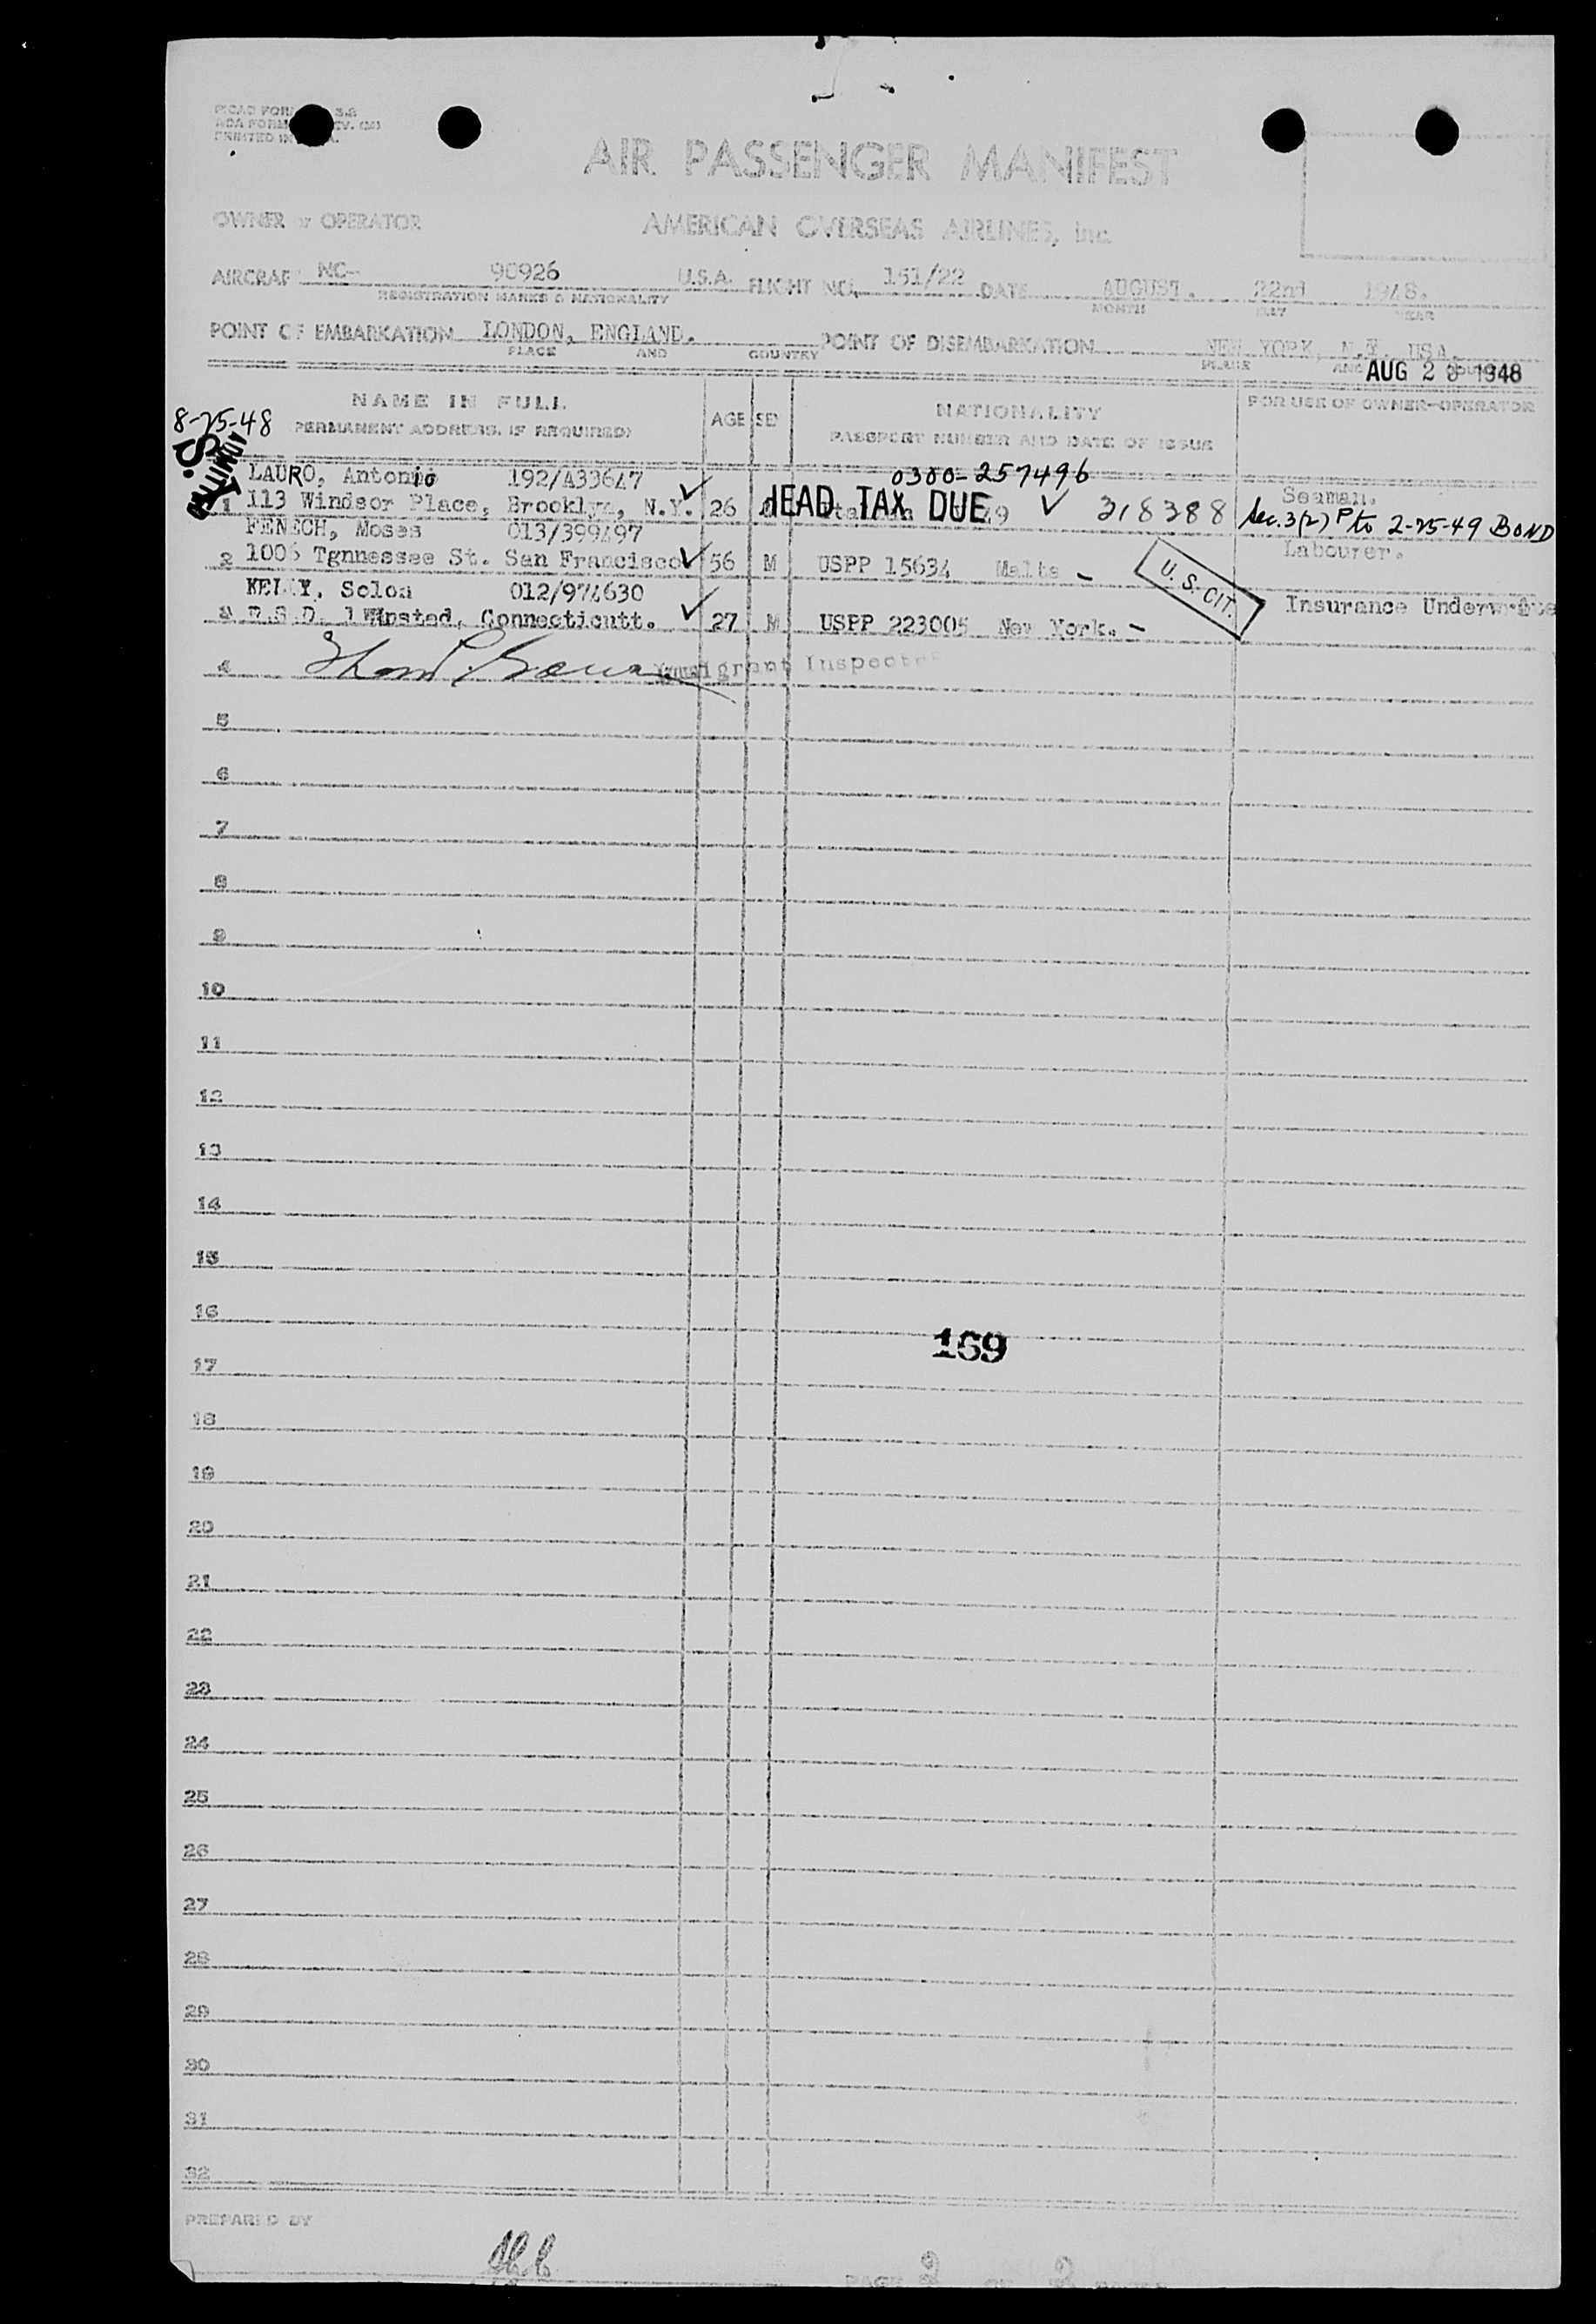 PRINTED IN
AIR PASSENGER MANIFEST
OWNER or OPERATOR AMERICAN OVERSEAS AIRLINES, Inc.
AIRCRAF NC- 90926 U.S.A. FLIGHT NO. 151/22 DATE AUGUST. 22nd 1948.
REGISTRATION MARKS & NATIONALITY MONTH DAY YEAR
POINT OF EMBARKATION LONDON, ENGLAND. POINT OF DISEMBARKATION NEW YORK, N.Y. USA.
PLACE AND COUNTRY PLACE AND
AUG 23 1948
NAME IN FULL AGE SEX NATIONALITY FOR USE OF OWNER-OPERATOR
8-25-48 PERMANENT ADDRESS, IF REQUIRED) PASSPORT NUMBER AND DATE OF ISSUE
ADMITTED
LAURO, Antonio 192/A33647 0300-257496 Seaman.
1 113 Windsor Place, Brooklyn, N.Y. ✓ 26 HEAD TAX DUE ✓ 318388 Sec. 3(2) P to 2-25-49 BOND
FENECH, Moses 013/399497 Labourer.
2 1006 Tgnnessee St. San Francisco ✓ 56 M USPP 15634 Malta - U.S. CIT.
KELLY. Solon 012/974630 Insurance Underwrite
3 R.S.D. 1 Winsted, Connecticutt. ✓ 27 M USPP 223005 New York. -
4 Immigrant Inspector
5
6
7
8
9
10
11
12
13
14
15
16
169
17
18
19
20
21
22
23
24
25
26
27
28
29
30
31
32
PREPARED BY
PAGE 2 OF 2